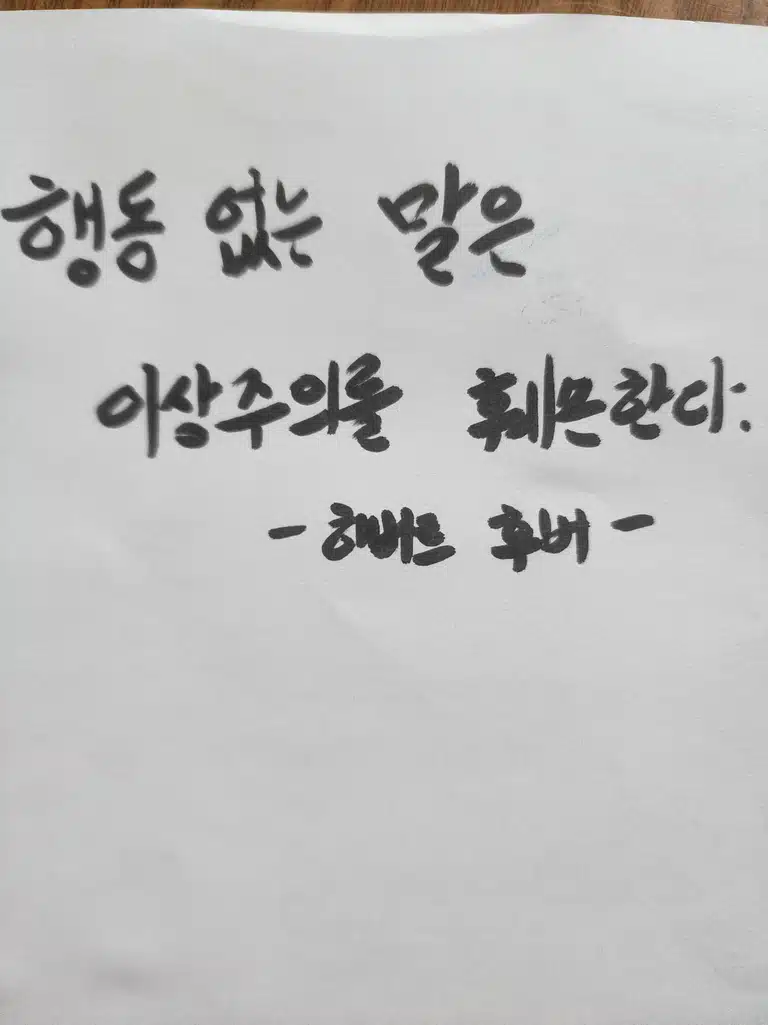 행동 없는 말은
이상주의를 훼손한다.
- 허버트 후버 -